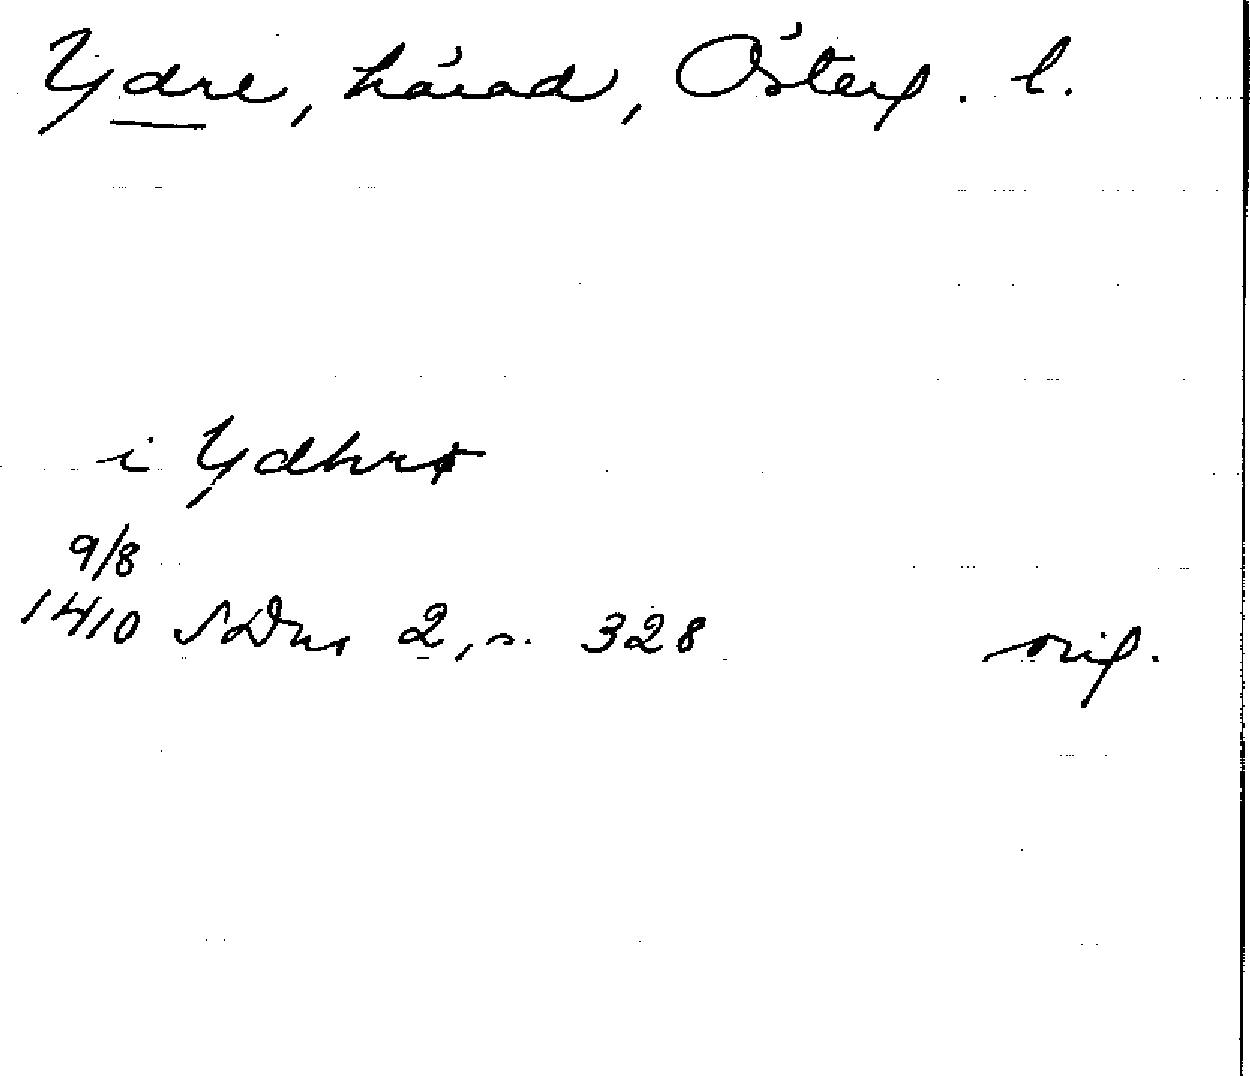 Ydre, härad, Österg. l.
i Ydhrø
9/8
1410 SDns 2, s. 328 orig.